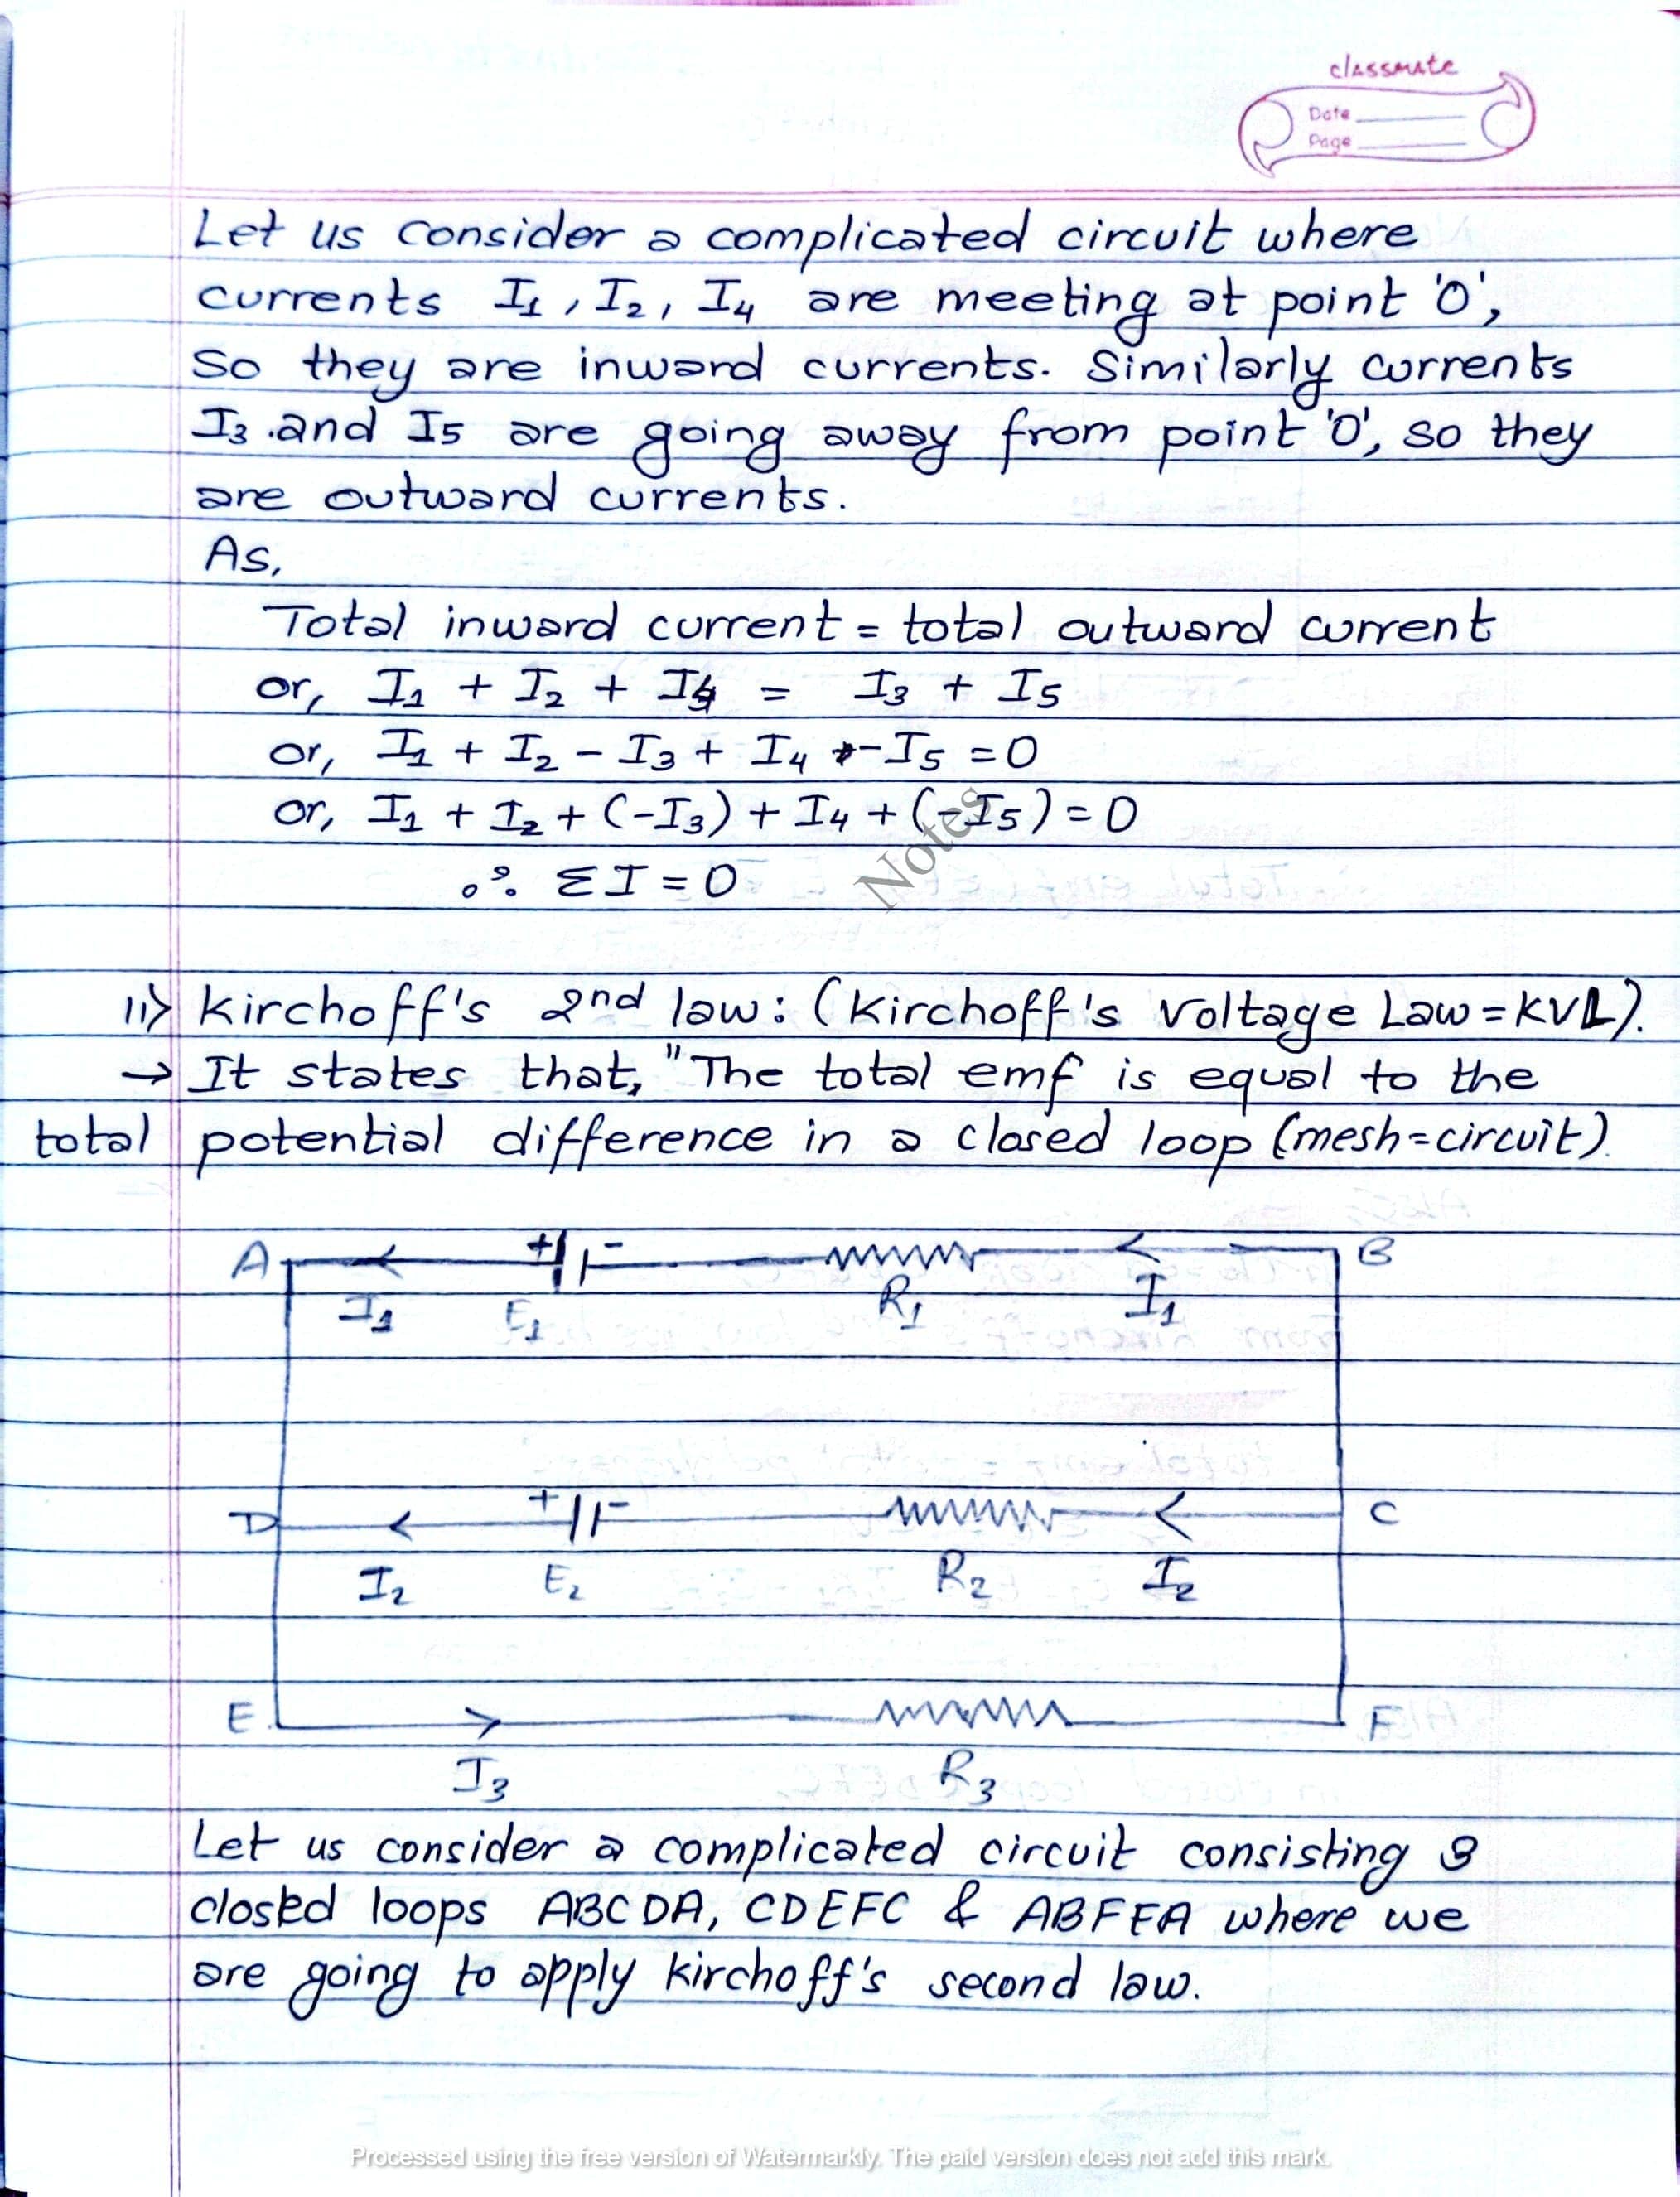 classmate
Date
Page
Let us consider a complicated circuit where
currents I₁, I₂, I₄ are meeting at point 'O',
So they are inward currents. Similarly currents
I₃ and I₅ are going away from point 'O', so they
are outward currents.
As,
Total inward current = total outward current
or, I₁ + I₂ + I₄ = I₃ + I₅
or, I₁ + I₂ - I₃ + I₄ - I₅ = 0
or, I₁ + I₂ + (-I₃) + I₄ + (-I₅) = 0
∴ ΣI = 0
Notes
ii) Kirchoff's 2nd law: (Kirchoff's Voltage Law = KVL).
→ It states that, "The total emf is equal to the
total potential difference in a closed loop (mesh = circuit).
A + - B
I₁ E₁ R₁ I₁
D + - C
I₂ E₂ R₂ I₂
E F
I₃ R₃
Let us consider a complicated circuit consisting 3
closed loops ABCDA, CDEFC & ABFEA where we
are going to apply kirchoff's second law.
Processed using the free version of Watermarkly. The paid version does not add this mark.